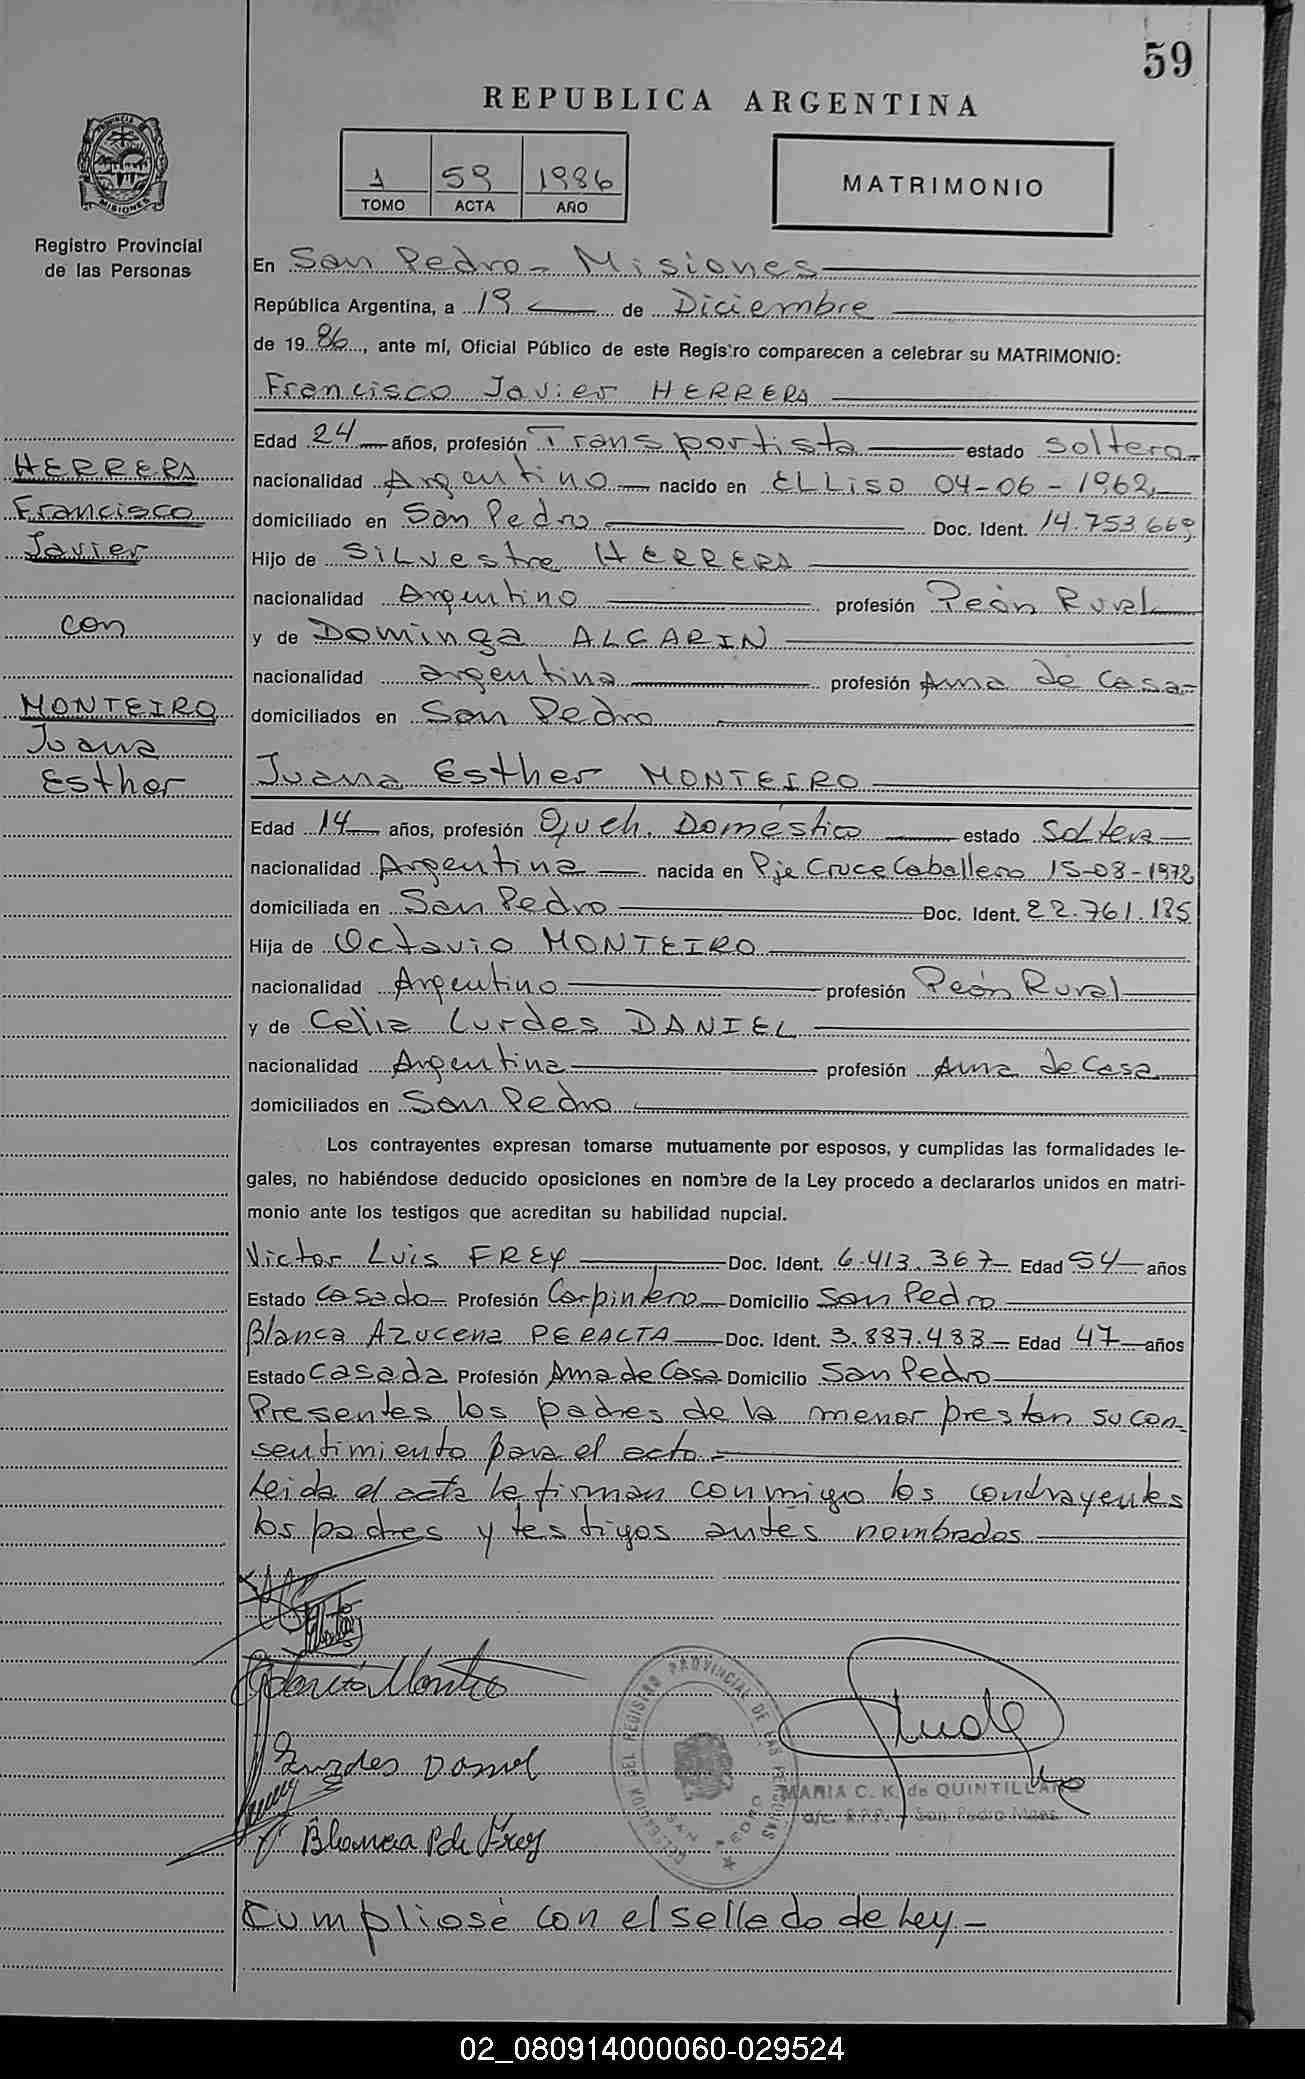 59
REPUBLICA ARGENTINA
1 59 1986
TOMO ACTA AÑO
MATRIMONIO
PROVINCIA DE MISIONES
Registro Provincial
de las Personas
En San Pedro - Misiones
República Argentina, a 19 de Diciembre
de 1986, ante mí, Oficial Público de este Registro comparecen a celebrar su MATRIMONIO:
Francisco Javier HERRERA
Edad 24 años, profesión Transportista estado soltero
nacionalidad Argentino nacido en EL Liso 04-06-1962
domiciliado en San Pedro Doc. Ident. 14.753.669
Hijo de SiLvestre HERRERA
nacionalidad Argentino profesión Peón Rural
y de Dominga ALCARIN
nacionalidad argentina profesión Ama de Casa
domiciliados en San Pedro
HERRERA
Francisco
Javier
con
MONTEIRO
Juana
Esther
Juana Esther MONTEIRO
Edad 14 años, profesión Queh. Doméstico estado Soltera
nacionalidad Argentina nacida en Pje Cruce Caballero 15-08-1972
domiciliada en San Pedro Doc. Ident. 22.761.185
Hija de Octavio MONTEIRO
nacionalidad Argentino profesión Peón Rural
y de Celia Lurdes DANIEL
nacionalidad Argentina profesión Ama de Casa
domiciliados en San Pedro
Los contrayentes expresan tomarse mutuamente por esposos, y cumplidas las formalidades le-
gales, no habiéndose deducido oposiciones en nombre de la Ley procedo a declararlos unidos en matri-
monio ante los testigos que acreditan su habilidad nupcial.
Victor Luis FREY Doc. Ident. 6.413.367 Edad 54 años
Estado Casado Profesión Carpintero Domicilio San Pedro
Blanca Azucena PERALTA Doc. Ident. 3.887.488 Edad 47 años
Estado Casada Profesión Ama de Casa Domicilio San Pedro
Presentes los padres de la menor prestan su con-
sentimiento para el acto.-
Leida el acta la firman conmigo los contrayentes
los padres y testigos antes nombrados
Lurdes Daniel
Blanca P de Frey
DELEGACION DEL REGISTRO PROVINCIAL DE LAS PERSONAS
SAN PEDRO
MARIA C. K. de QUINTILLAN
a/c. R.P.P. - San Pedro Mnes.
Cumpliose con el sellado de Ley -
02_080914000060-029524